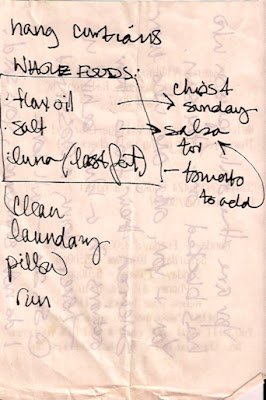 hang curtians
WHOLE FOODS:
· flax oil → chips &
sunday
· salt → salsa
for
· luna (last for)
- tomorro
to add
clean
laundary
pillow
run